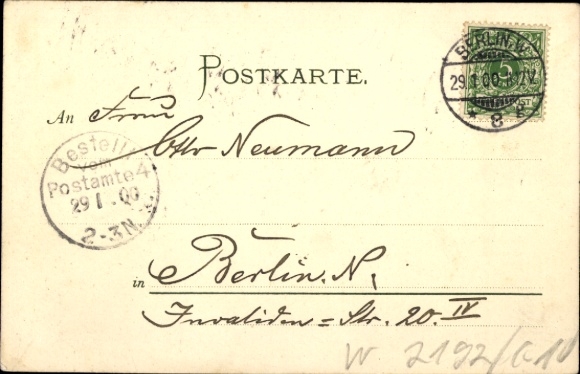 POSTKARTE.
BERLIN, W.
29.1.00. 1-2N.
* 8 g
5
An Frau
Otto Neumann
Bestellt
vom
Postamte 4
29 1. 00
2-3N.
in Berlin. N.
Invaliden=Str. 20. IV
W 2192/